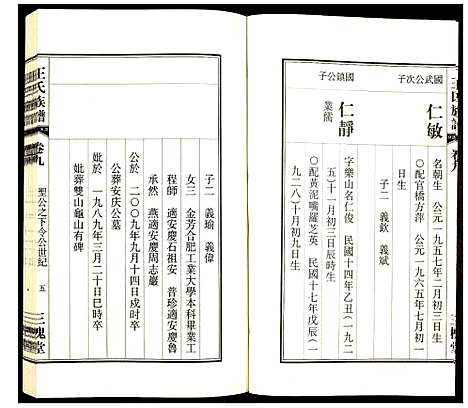 王氏族譜
卷九
三槐堂
國武公次子
仁敏
名朝生 公元一九五七年二月初三日生
配官橋方萍 公元一九六五年七月初一
日生
子二 義欽 義斌
國鎮公子
仁靜
業儒
字樂山名仁俊 民國十四年乙丑（一九二
五）十一月初三日辰時生
配黃泥嘴羅芝英 民國十七年戊辰（一
九二八）十月初九日生
子二 義瑜 義偉
女三 金芳合肥工業大學本科畢業工
程師 適安慶石祖安 普珍適安慶魯
承然 燕適安慶周志巖
公於二〇〇九年九月十四日戌時卒
公葬安慶公墓
妣於一九八九年三月二十日巳時卒
妣葬雙山龜山有碑
王氏族譜
卷九
聖公之下令公世紀
五
三槐堂